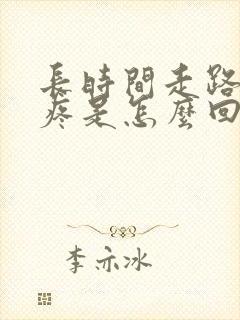 長時間走路
疼是怎麼回
李亦冰